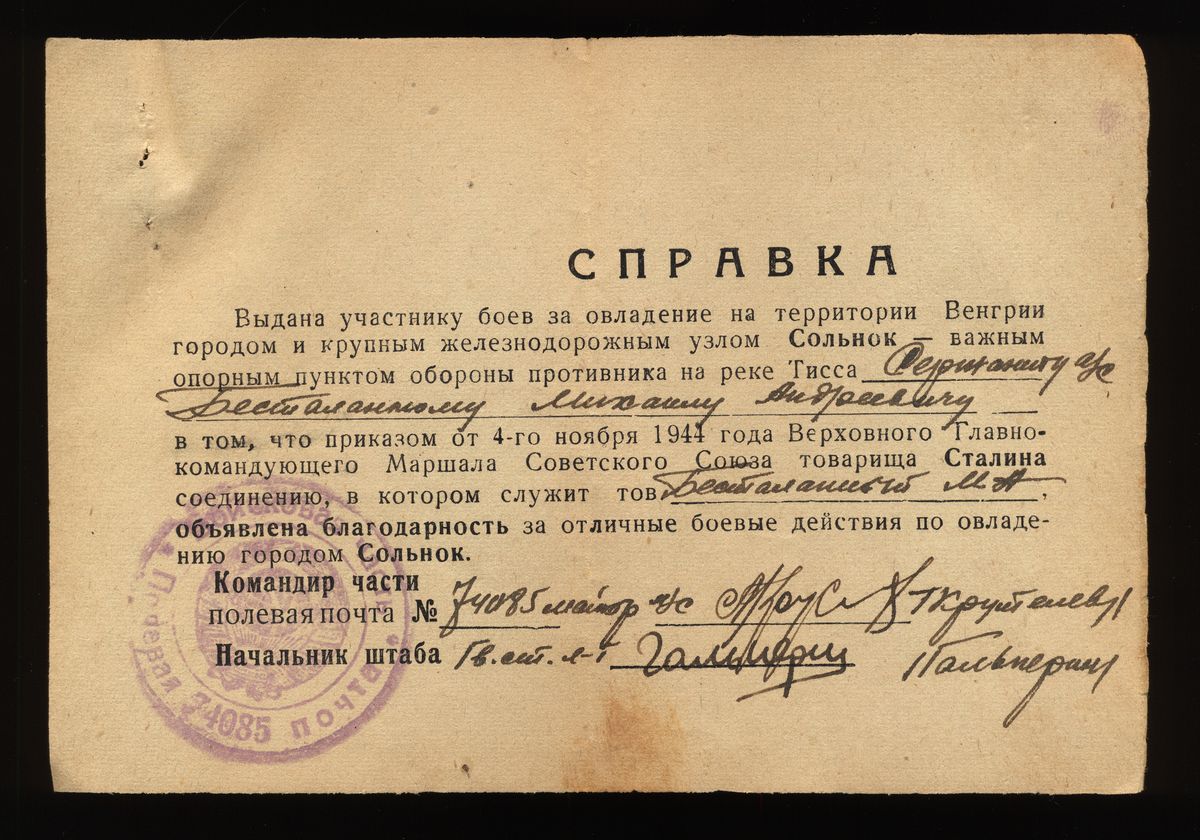 СПРАВКА
Выдана участнику боев за овладение на территории Венгрии
городом и крупным железнодорожным узлом Сольнок — важным
опорным пунктом обороны противника на реке Тисса Сержанту а/с
Бесталанному Михаилу Андреевичу
в том, что приказом от 4-го ноября 1944 года Верховного Главно-
командующего Маршала Советского Союза товарища Сталина
соединению, в котором служит тов Бесталанный М.А.,
объявлена благодарность за отличные боевые действия по овладе-
нию городом Сольнок.
Командир части
полевая почта № 74085 майор
Начальник штаба Гв. ст. л-т Гальперин /Гальперин/
Полевая почта 74085